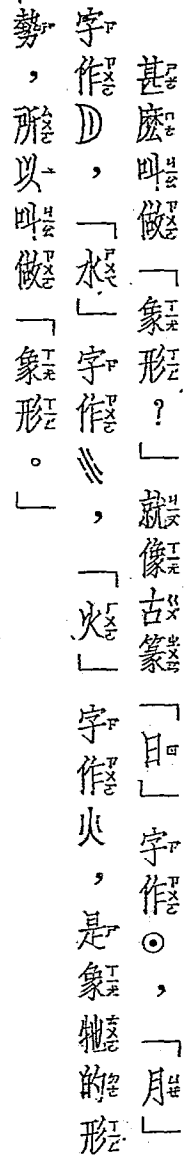 甚麽叫做「象形？」就像古篆「日」字作⊙，「月」
字作𝔻，「水」字作〣，「火」字作火，是象牠的形
勢，所以叫做「象形。」